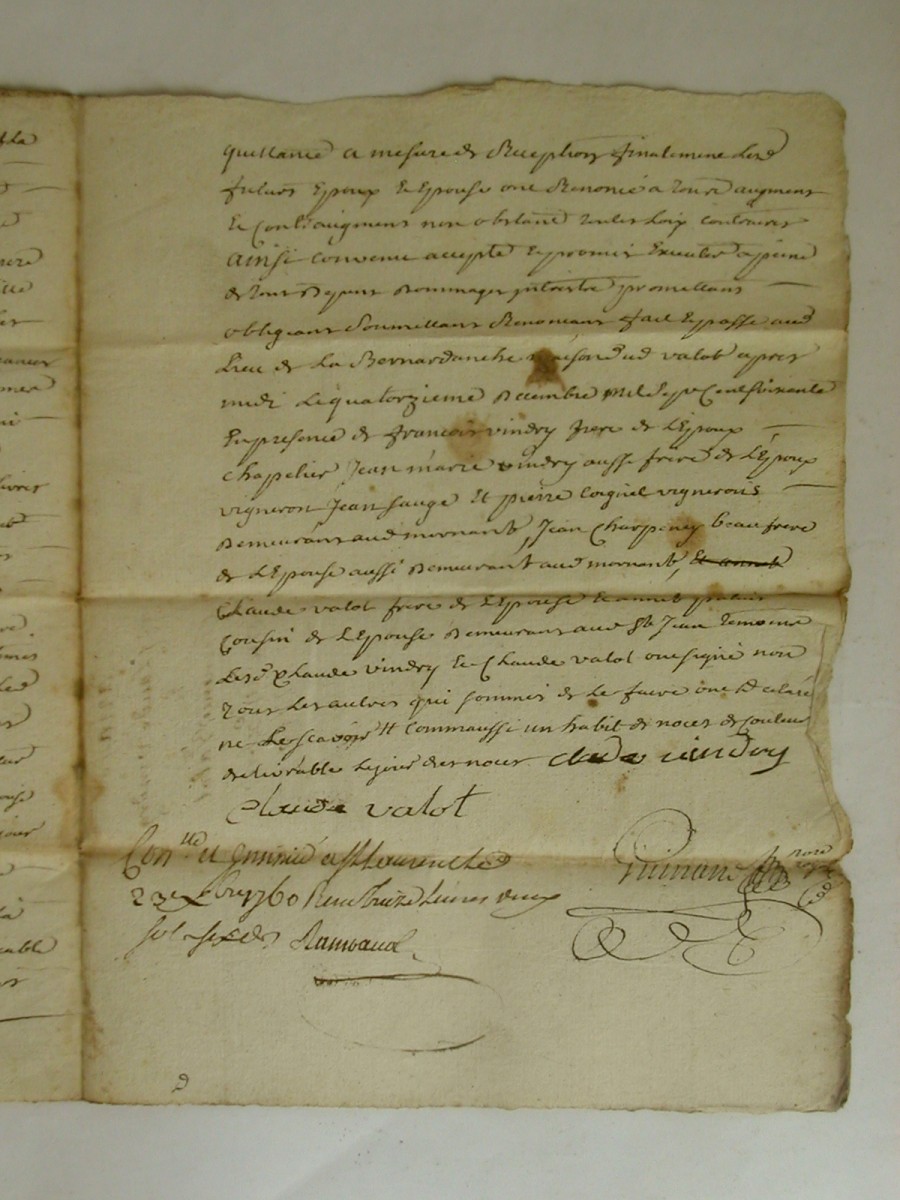 quittance a mesure de Reception finalement lesd
futurs Epoux et Epouse ont Renoncé a tout augment
et contr augment non obstant toutes loix contraires
Ainsi convenu accepté et promis Executer a peine
de tous Depens Dommages interets promettans
obligeans Soumettans Renonceans fait et passé aud
Lieu de La Bernardanche maison dud valot apres
midi Le quatorzieme Decembre mil sept Cent soixante
En presence de francois vindry frere de L'Epoux
chapelier Jean marie vindry aussi frere de L'Epoux
vigneron Jean Sauge et pierre vignerons
Demeurans aud mornant, Jean Charpenay beaufrere
de L'Epouse aussi Demeurant aud mornant, et annet
Claude valot frere de L'Epouse et annet
Cousin de L'Epouse Demeurans aud St Jean Temoins
Lesd Claude vindry et Claude valot ont signé non
tous Les autres qui sommés de Le faire ont declaré
ne Le scavoir # comm aussi un habit de noces de couleur
delivrable Le jour des noces claude vindry
claude valot
Con.lle et a St Laurent Le
23e Xbre 1760 Receu treize Livres deux
sol six d Rambaud
Guinand